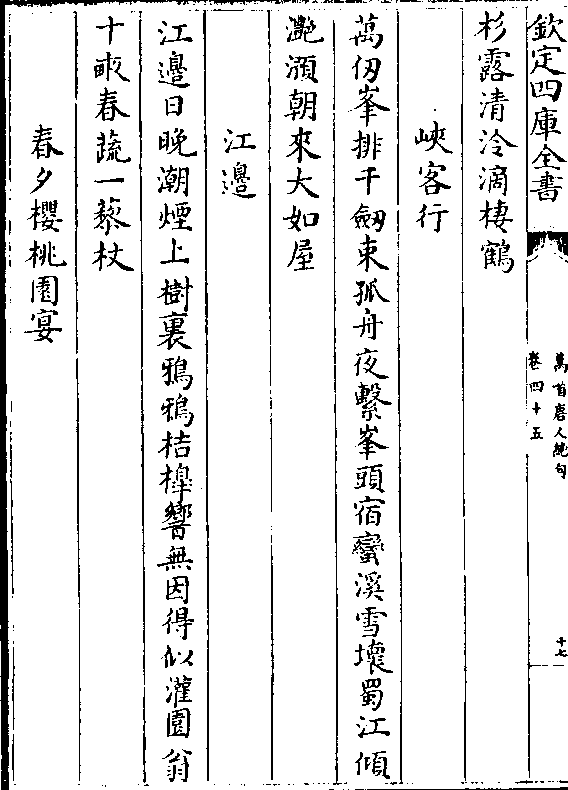 欽定四庫全書
萬首唐人絶句
卷四十五
十七
杉露清泠滴棲鶴
峽客行
萬仞峯排千劒束孤舟夜繫峯頭宿蠻溪雪壞蜀江傾
灧澦朝來大如屋
江邊
江邊日晩潮煙上樹裏鴉鴉桔橰響無因得似灌園翁
十畝春蔬一藜杖
春夕櫻桃園宴